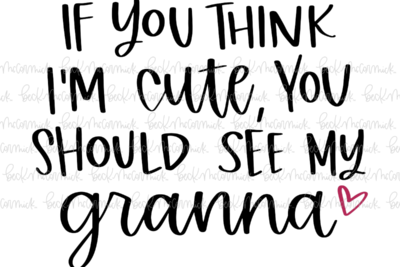 IF YOU THINK
I'M cute, YOU
SHOULD SEE MY
granna